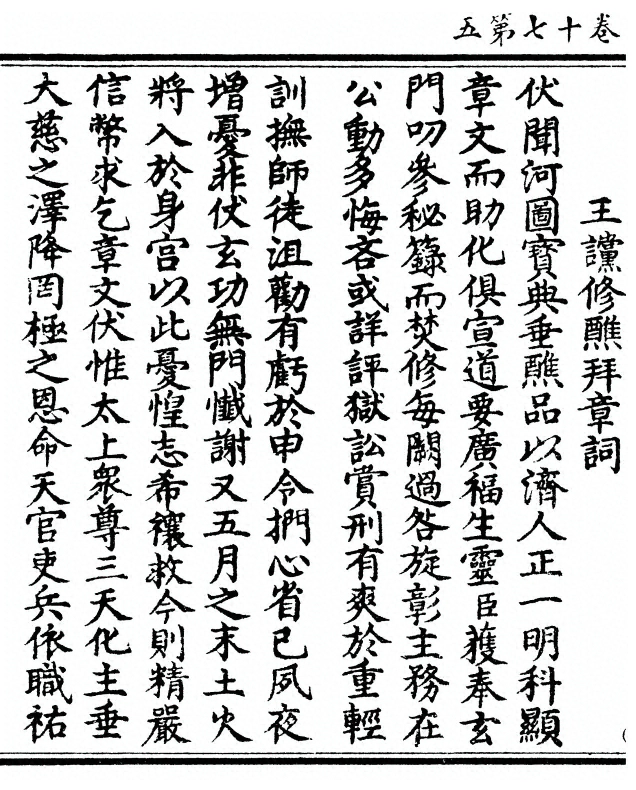 卷十七第五
王讜修醮拜章詞
伏聞河圖寶典垂醮品以濟人正一明科顯
章文而助化俱宣道要廣福生靈臣獲奉玄
門叨參秘籙而焚修每闕過咎旋彰主務在
公動多悔吝或詳評獄訟賞刑有爽於重輕
訓撫師徒沮勸有虧於申令捫心省己夙夜
增憂非伏玄功無門懺謝又五月之末土火
將入於身宮以此憂惶志希禳救今則精嚴
信幣求乞章文伏惟太上衆尊三天化主垂
大慈之澤降罔極之恩命天官吏兵依職祐